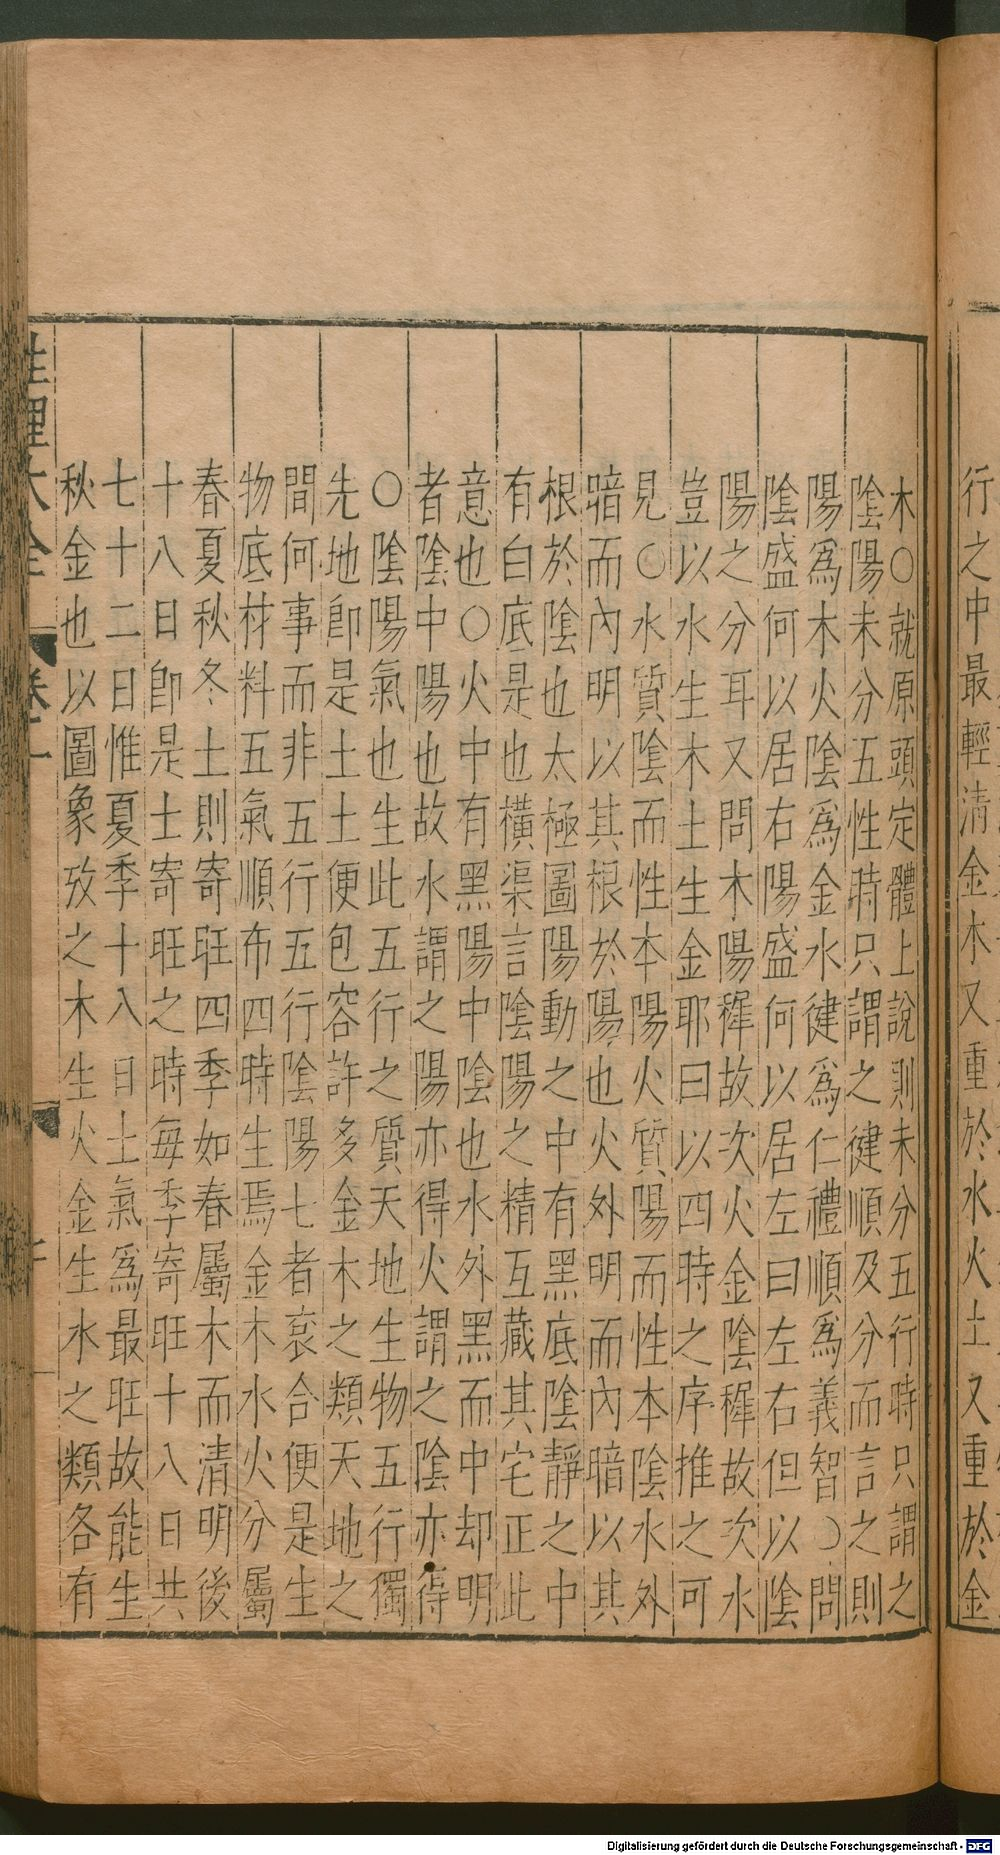 行之中最輕清金木又重於水火土又重於金
木○就原頭定體上說則未分五行時只謂之
陰陽未分五性時只謂之健順及分而言之則
陽爲木火陰爲金水健爲仁禮順爲義智○問
陰盛何以居右陽盛何以居左曰左右但以陰
陽之分耳又問木陽穉故次火金陰穉故次水
豈以水生木土生金耶曰以四時之序推之可
見○水質陰而性本陽火質陽而性本陰水外
暗而內明以其根於陽也火外明而內暗以其
根於陰也太極圖陽動之中有黑底陰靜之中
有白底是也橫渠言陰陽之精互藏其宅正此
意也○火中有黑陽中陰也水外黑而中却明
者陰中陽也故水謂之陽亦得火謂之陰亦得
○陰陽氣也生此五行之質天地生物五行獨
先地卽是土土便包容許多金木之類天地之
間何事而非五行五行陰陽七者衮合便是生
物底材料五氣順布四時生焉金木水火分屬
春夏秋冬土則寄旺四季如春屬木而清明後
十八日卽是土寄旺之時每季寄旺十八日共
七十二日惟夏季十八日土氣爲最旺故能生
秋金也以圖象攷之木生火金生水之類各有
性理大全 卷一
Digitalisierung gefördert durch die Deutsche Forschungsgemeinschaft - DFG